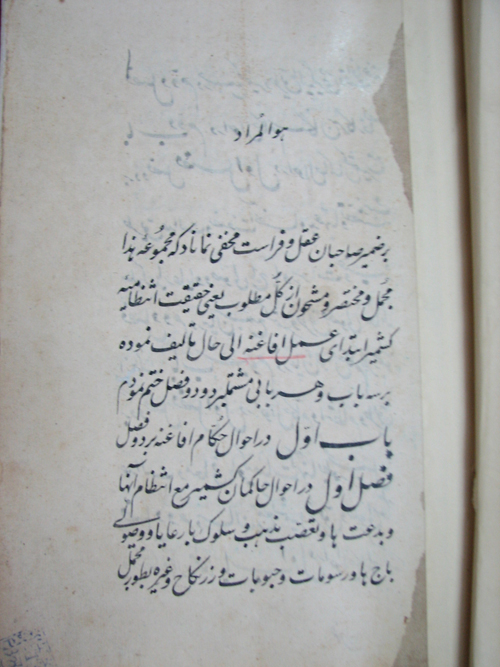 هوالمراد
برضمیر صاحبان عقل و فراست مخفی نماناد که مجموعهٔ هذا
مجمل و مختصر و مشحون از کلّ مطلوب یعنی حقیقت انتظامیه
کشمیر ابتدای عمل افاغنه الی حال تالیف نموده
برسه باب و هر بابی مشتمل بر دو دو فصل ختم نمودم
باب اوّل در احوال حکام افاغنه بر دو فصل
فصل اوّل در احوال حاکمان کشمیر مع انتظام آنها
و بدعت ها و تعصّب مذهب و سلوک با رعایا و وصولی
باج ها و رسومات و حبوبات و زر نکاح و غیره بطور مجمل